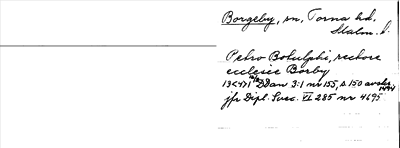 Borgeby, sn, Torna hd.
Malm. l.
Petro Botulphi, rectore
ecclesie Borby
13<47> DDan 3:1 nr 155, s 150 avskr
jfr Dipl. Svec. VI 285 nr 4695